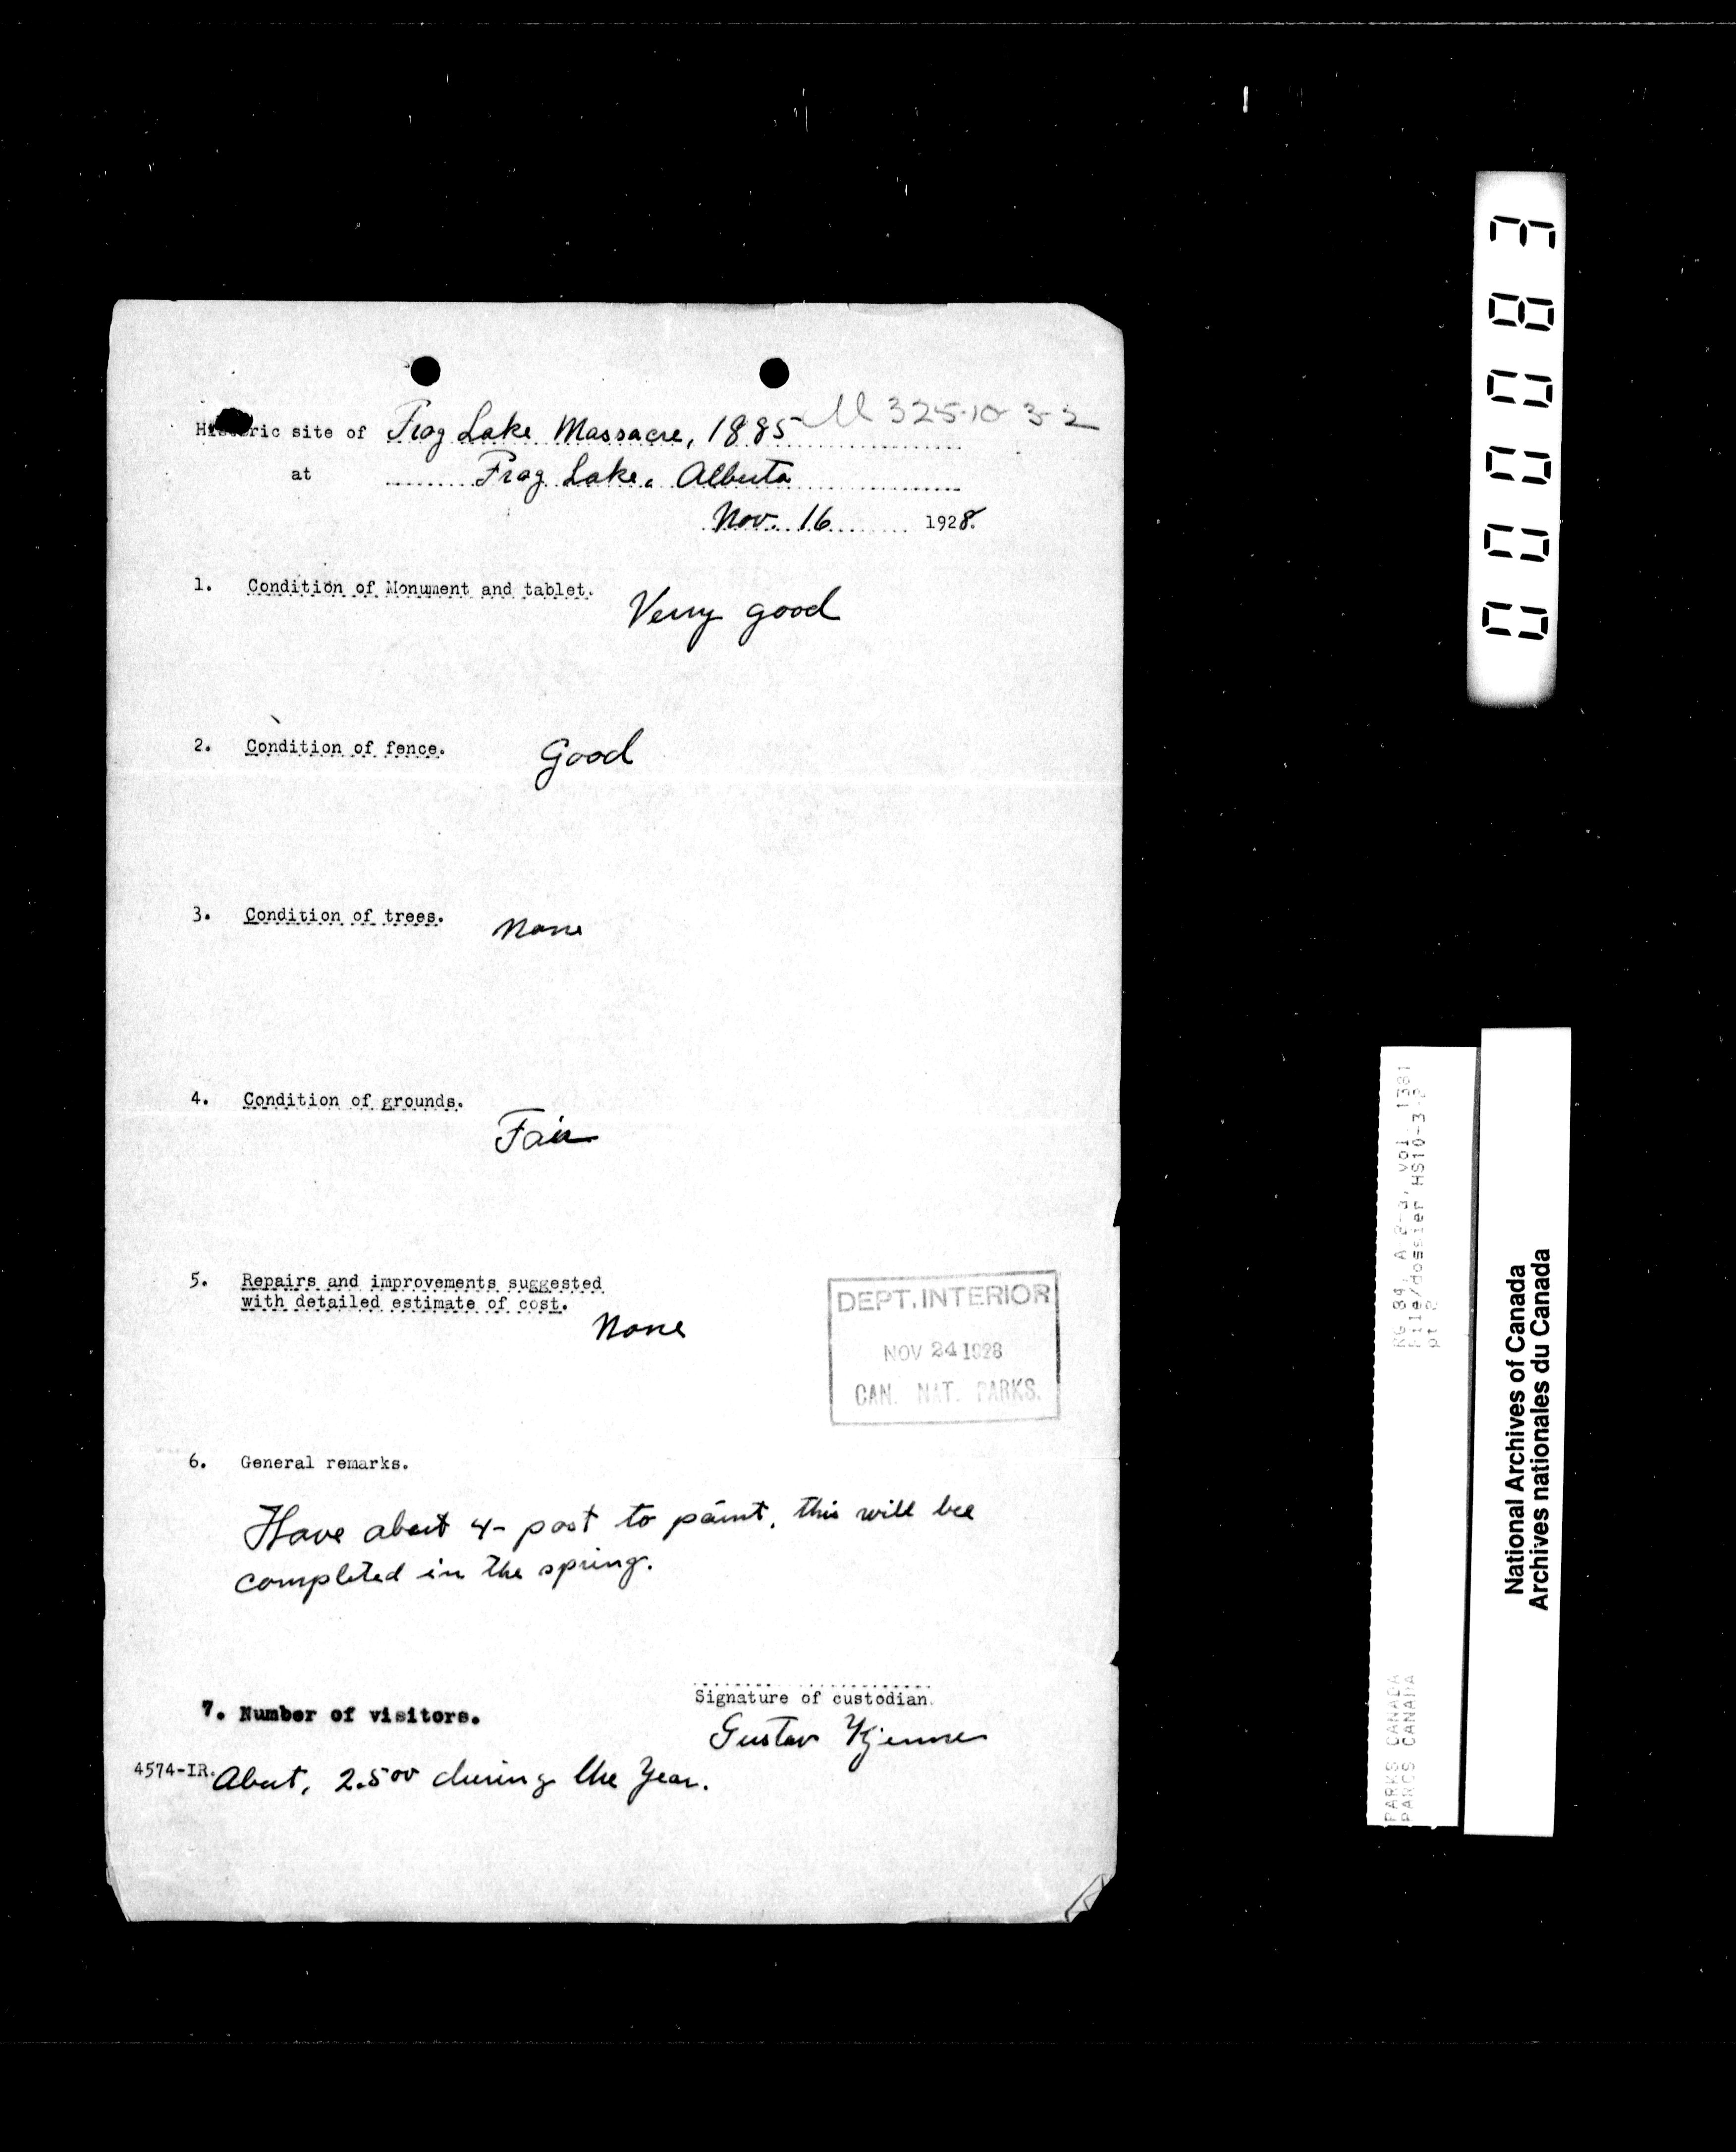 M 325-10-3-2
Historic site of Frog Lake Massacre, 1885
at Frog Lake, Alberta
Nov. 16 1928.
1. Condition of Monument and tablet.
Verry good
2. Condition of fence.
Good
3. Condition of trees.
None
4. Condition of grounds.
Fair
5. Repairs and improvements suggested
with detailed estimate of cost.
None
DEPT. INTERIOR
NOV 24 1928
CAN. NAT. PARKS.
6. General remarks.
Have about 4- post to paint, this will bee
completed in the spring.
Signature of custodian.
7. Number of visitors.
Gustav
4574-IR.
About, 2.500 during the Year.
000083
RG 84, A-2-a, vol 1381
File/dossier HS10-3-2
pt 2
PARKS CANADA
PARCS CANADA
National Archives of Canada
Archives nationales du Canada